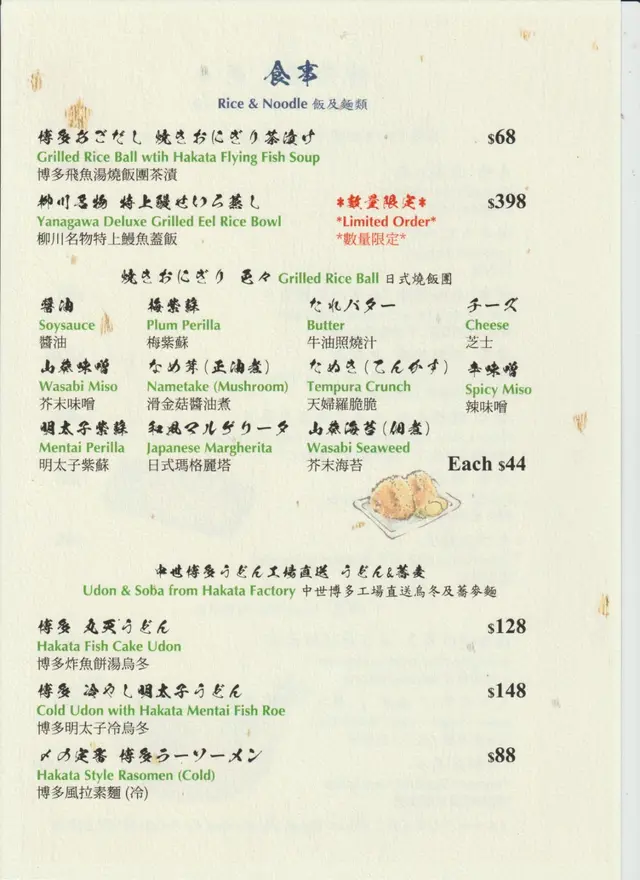 食事
Rice & Noodle 飯及麵類
博多あごだし 焼きおにぎり茶漬け $68
Grilled Rice Ball wtih Hakata Flying Fish Soup
博多飛魚湯燒飯團茶漬
柳川名物 特上鰻せいろ蒸し *数量限定* $398
Yanagawa Deluxe Grilled Eel Rice Bowl *Limited Order*
柳川名物特上鰻魚蓋飯 *數量限定*
焼きおにぎり 色々 Grilled Rice Ball 日式燒飯團
醤油 梅紫蘇 たれバター チーズ
Soysauce Plum Perilla Butter Cheese
醬油 梅紫蘇 牛油照燒汁 芝士
山葵味噌 なめ茸(正油煮) たぬき(てんかす) 辛味噌
Wasabi Miso Nametake (Mushroom) Tempura Crunch Spicy Miso
芥末味噌 滑金菇醬油煮 天婦羅脆脆 辣味噌
明太子紫蘇 和風マルゲリータ 山葵海苔(佃煮)
Mentai Perilla Japanese Margherita Wasabi Seaweed
明太子紫蘇 日式瑪格麗塔 芥末海苔 Each $44
中世博多うどん工場直送 うどん&蕎麦
Udon & Soba from Hakata Factory 中世博多工場直送烏冬及蕎麥麵
博多 丸天うどん $128
Hakata Fish Cake Udon
博多炸魚餅湯烏冬
博多 冷やし明太子うどん $148
Cold Udon with Hakata Mentai Fish Roe
博多明太子冷烏冬
〆の定番 博多ラーソーメン $88
Hakata Style Rasomen (Cold)
博多風拉素麵 (冷)